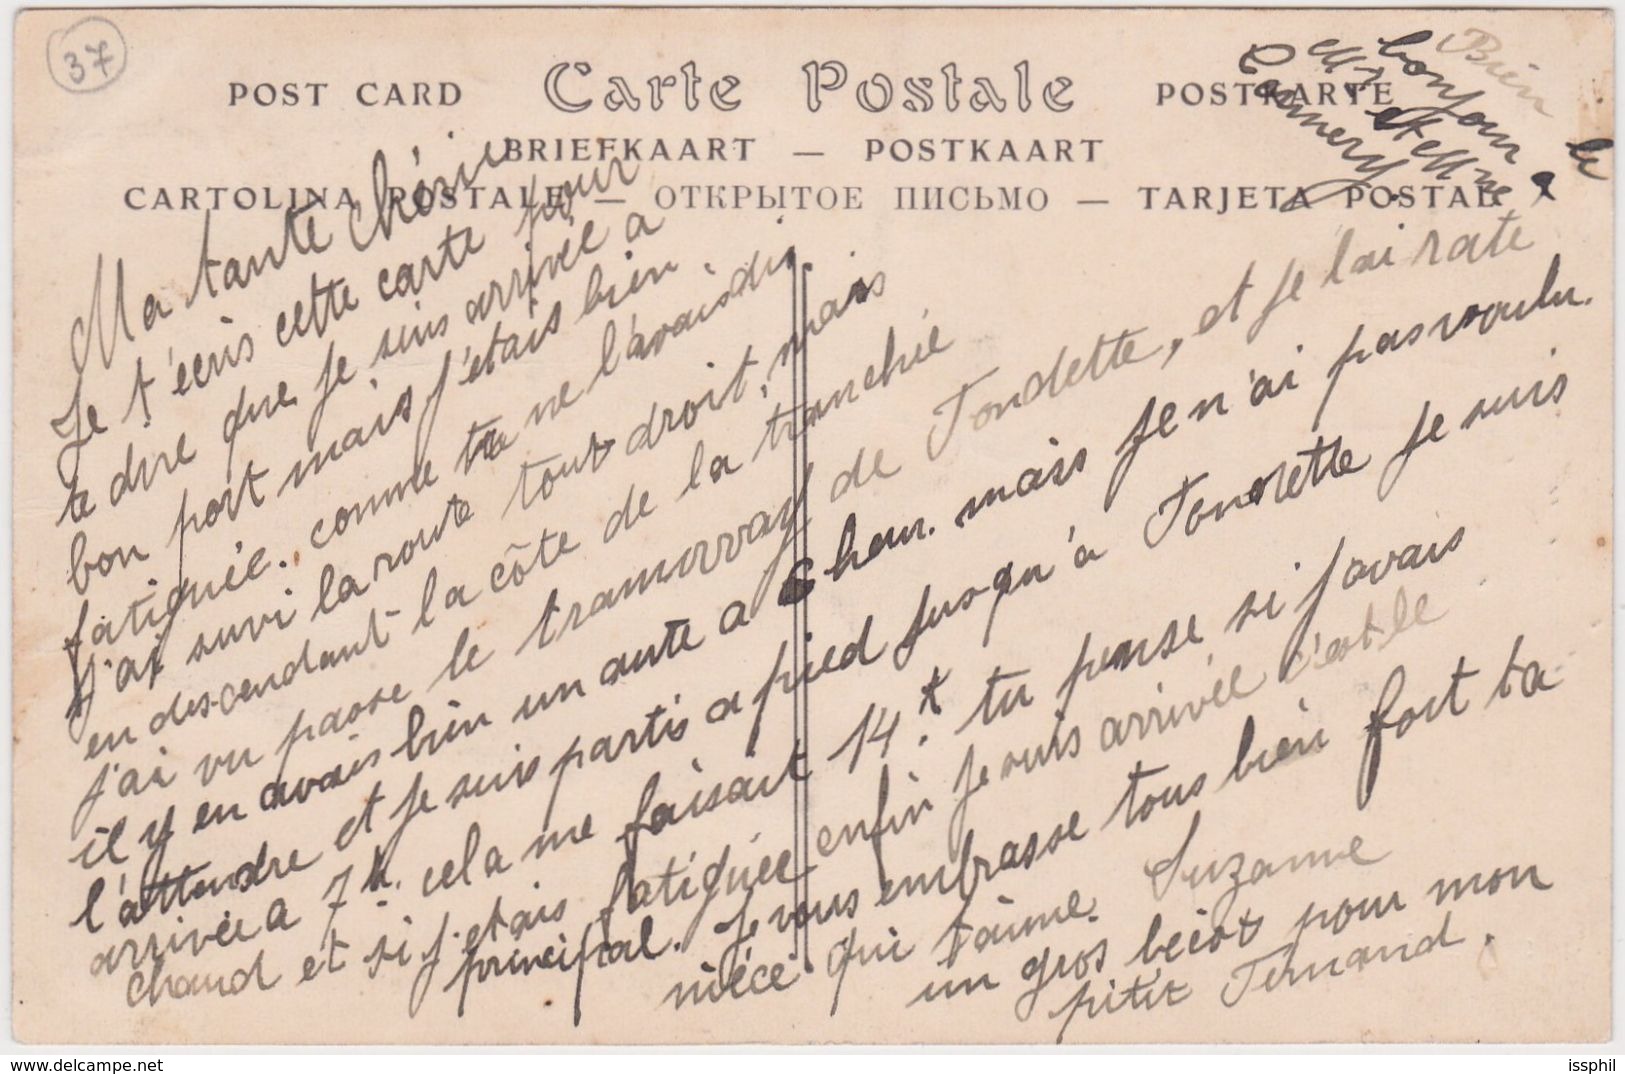 37
POST CARD Carte Postale POSTKARTE
BRIEFKAART — POSTKAART
CARTOLINA POSTALE — ОТКРЫТОЕ ПИСЬМО — TARJETA POSTAL
Bien le
bonjour a
Mr et Mme
Ma tante chérie
Je t'écris cette carte pour
te dire que je suis arrivée a
bon port mais j'étais bien
fatiguée. comme tu ne l'avais dit
j'ai suivi la route tout droit, mais
en descendant la côte de la tranchée
j'ai vu passe le tramway de Fondette, et je l'ai rate
il y en avais bien un autre a 6 heur. mais je n'ai pas voulu
l'attendre et je suis partis a pied jusqu'à Fondette je suis
arrivée a 7 h. cela me faisait 14 k. tu pense si j'avais
chaud et si j'étais fatiguée enfin je suis arrivée c'est le
principal. Je vous embrasse tous bien fort ta
nièce qui t'aime. Suzanne
un gros bécot pour mon
pitit Fernand.
issphil